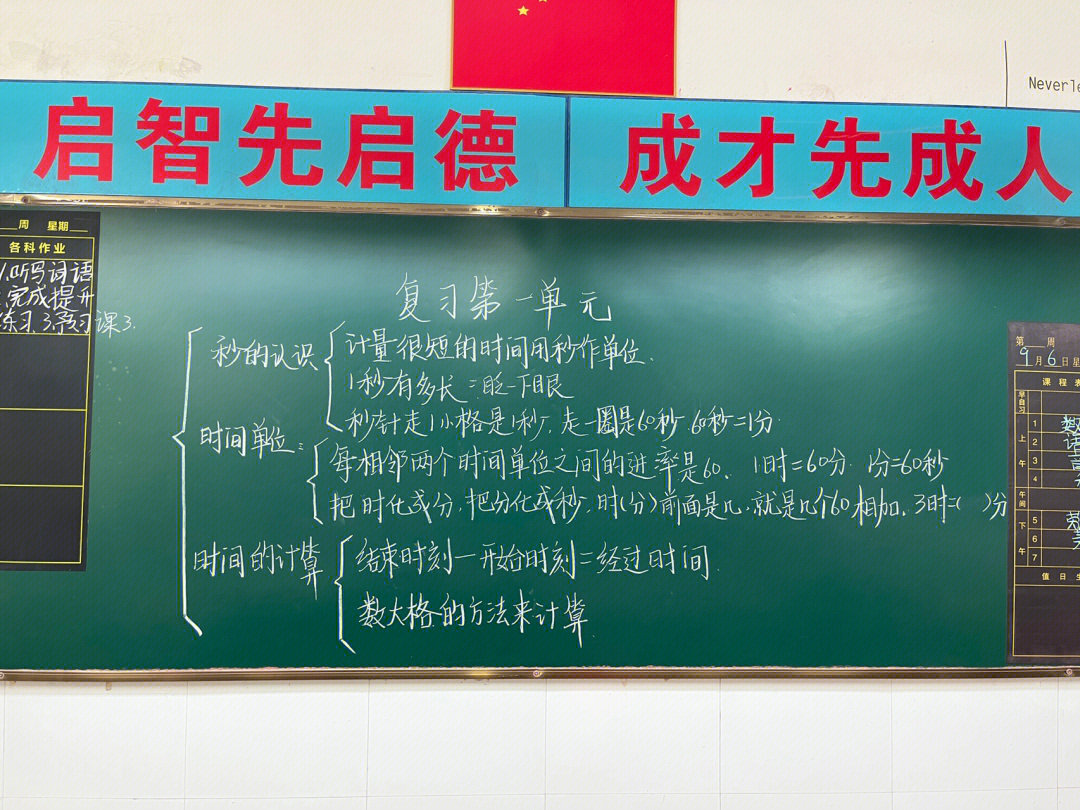 Neverle
启智先启德
成才先成人
周 星期
各科作业
1.听写词语
完成提升
练习.3.预习课3.
复习第一单元
秒的认识
计量很短的时间用秒作单位.
1秒有多长:眨一下眼
秒针走1小格是1秒,走一圈是60秒.60秒=1分
时间单位:
每相邻两个时间单位之间的进率是60. 1时=60分. 1分=60秒
把时化成分,把分化成秒,时(分)前面是几,就是几个60相加. 3时=( )分
时间的计算
结束时刻-开始时刻=经过时间.
数大格的方法来计算
第 周
9月6日 星
课程表
早自习
上午
1 数
2 语
3
4
午间
下午
5
6 美
7
值日生